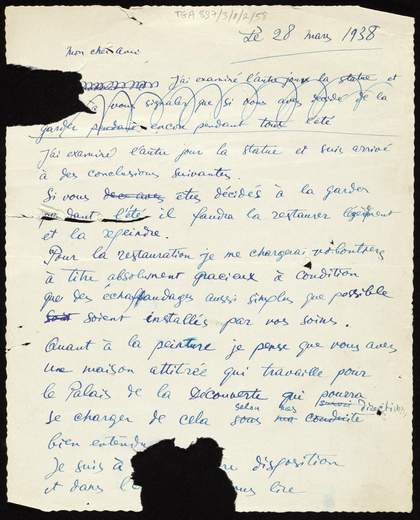 TGA 887/3/1/2/58
Le 28 mars 1938
Mon cher Ami
J'ai examiné l'autre jour la statue et
à vous signaler que si vous avez décidé de la
garder pendant encore pendant tout l'été
J'ai examiné l'autre jour la statue et suis arrivé
à des conclusions suivantes.
Si vous etes décidés à la garder
pendant l'été il faudra la restaurer légèrement
et la repeindre.
Pour la restauration je me chargerai volontiers
à titre absolument gracieux à condition
que des échaffaudages aussi simples que possible
soient installés par vos soins.
Quant à la peinture je pense que vous avez
une maison attitrée qui travaille pour
le Palais de la Découverte qui pourra
se charger de cela selon nos directives
sous ma conduite
bien entendu
Je suis à disposition
et dans l' vous lire